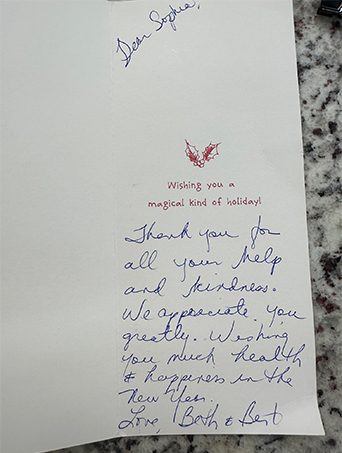 Dear Sophia,
Wishing you a
magical kind of holiday!
Thank you for
all your help
and kindness.
We appreciate you
greatly. Wishing
you much health
& happiness in the
New Year.
Love, Beth & Bert